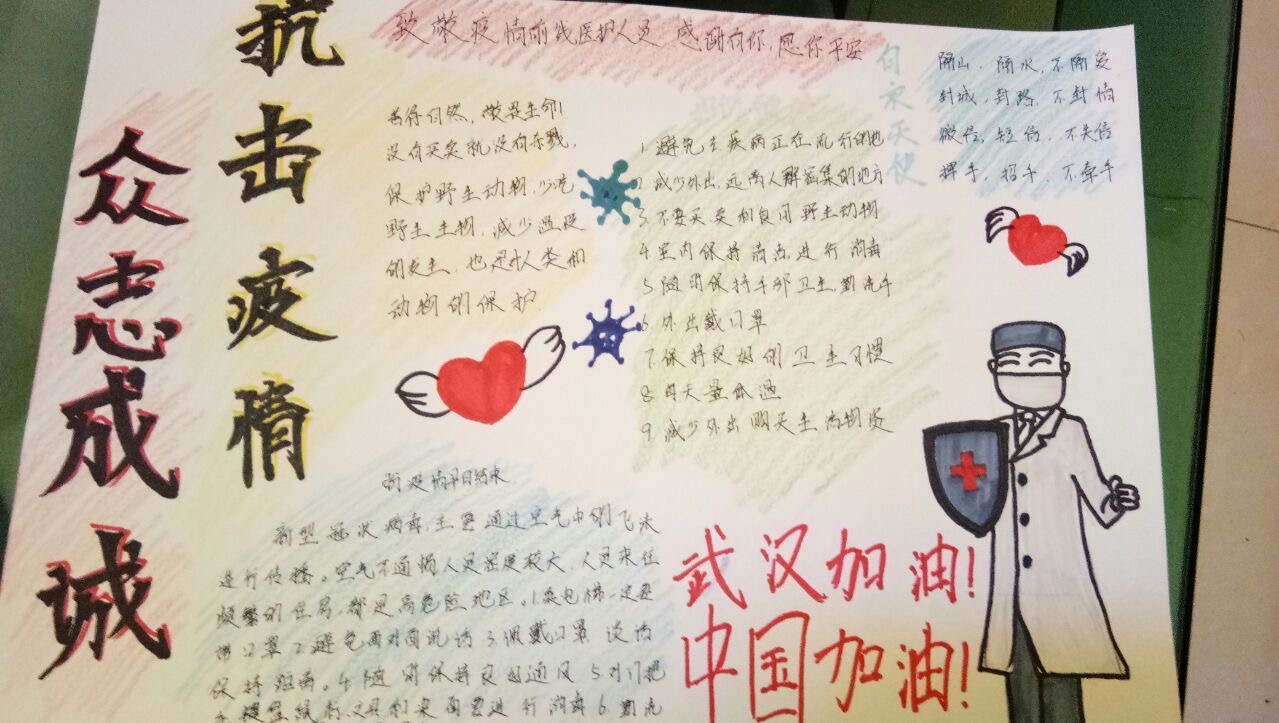 抗击疫情
众志成诚
致敬疫情前线医护人员 感谢有你,愿你平安
白衣天使
隔山,隔水,不隔爱
封城,封路,不封情
微信,短信,不失信
挥手,招手,不牵手
善待自然,敬畏生命
没有买卖就没有杀戮,
保护野生动物,少吃
野生生物,减少瘟疫
的发生,也是人类和
动物的保护
1.避免去疾病正在流行的地
2.减少外出,远离人群密集的地方
3.不要买卖和食用野生动物
4.室内保持清洁,进行消毒
5.随时保持手部卫生,勤洗手
6.外出戴口罩
7.保持良好的卫生习惯
8.每天量体温
9.减少外出购买生活物资
新型冠状病毒,主要通过空气中的飞沫
进行传播。空气不通畅人员密度较大,人员来往
频繁的住宅,都是高危险地区。1.
带口罩2.避免面对面说话3.佩戴口罩,谈话
保持距离。4.随时保持良好通风5.对门把
进行消毒6.勤洗
武汉加油!
中国加油!